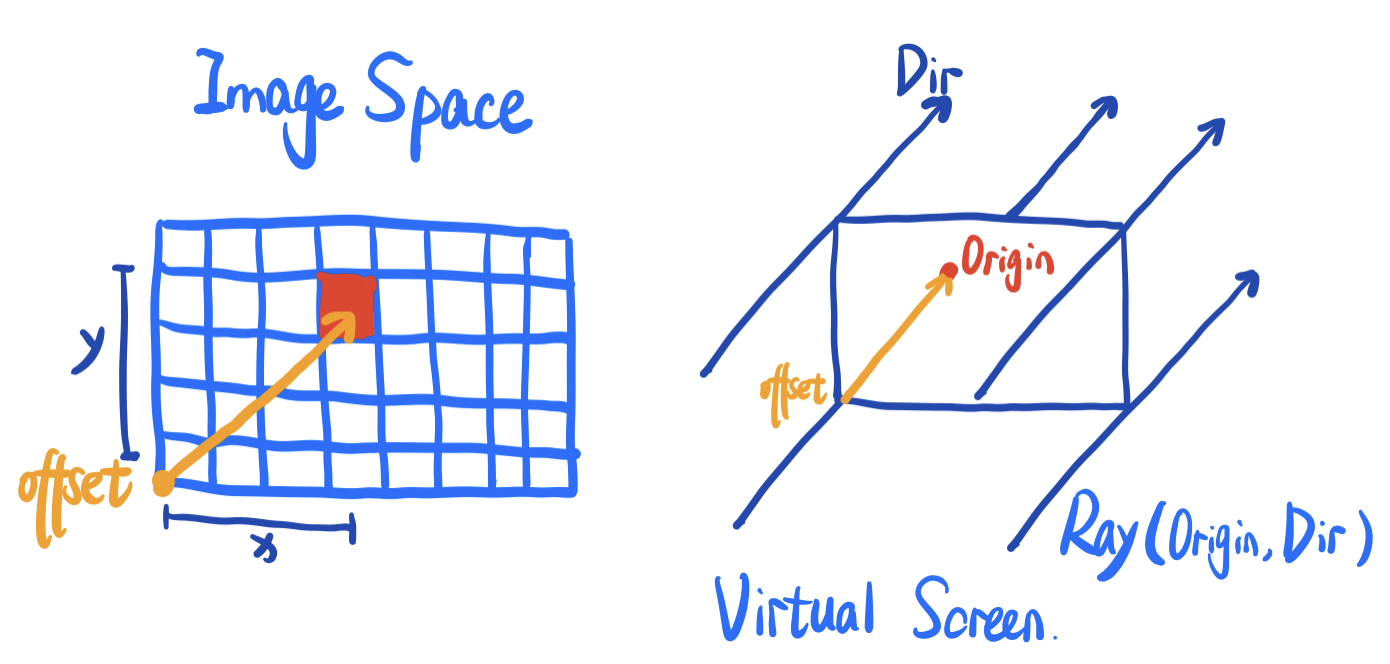 Image Space
y
offset
x
Dir
Origin
offset
Ray(Origin, Dir)
Virtual Screen.